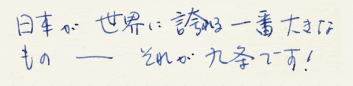 日本が 世界に 誇れる 一番 大きな
もの ― それが 九条です!